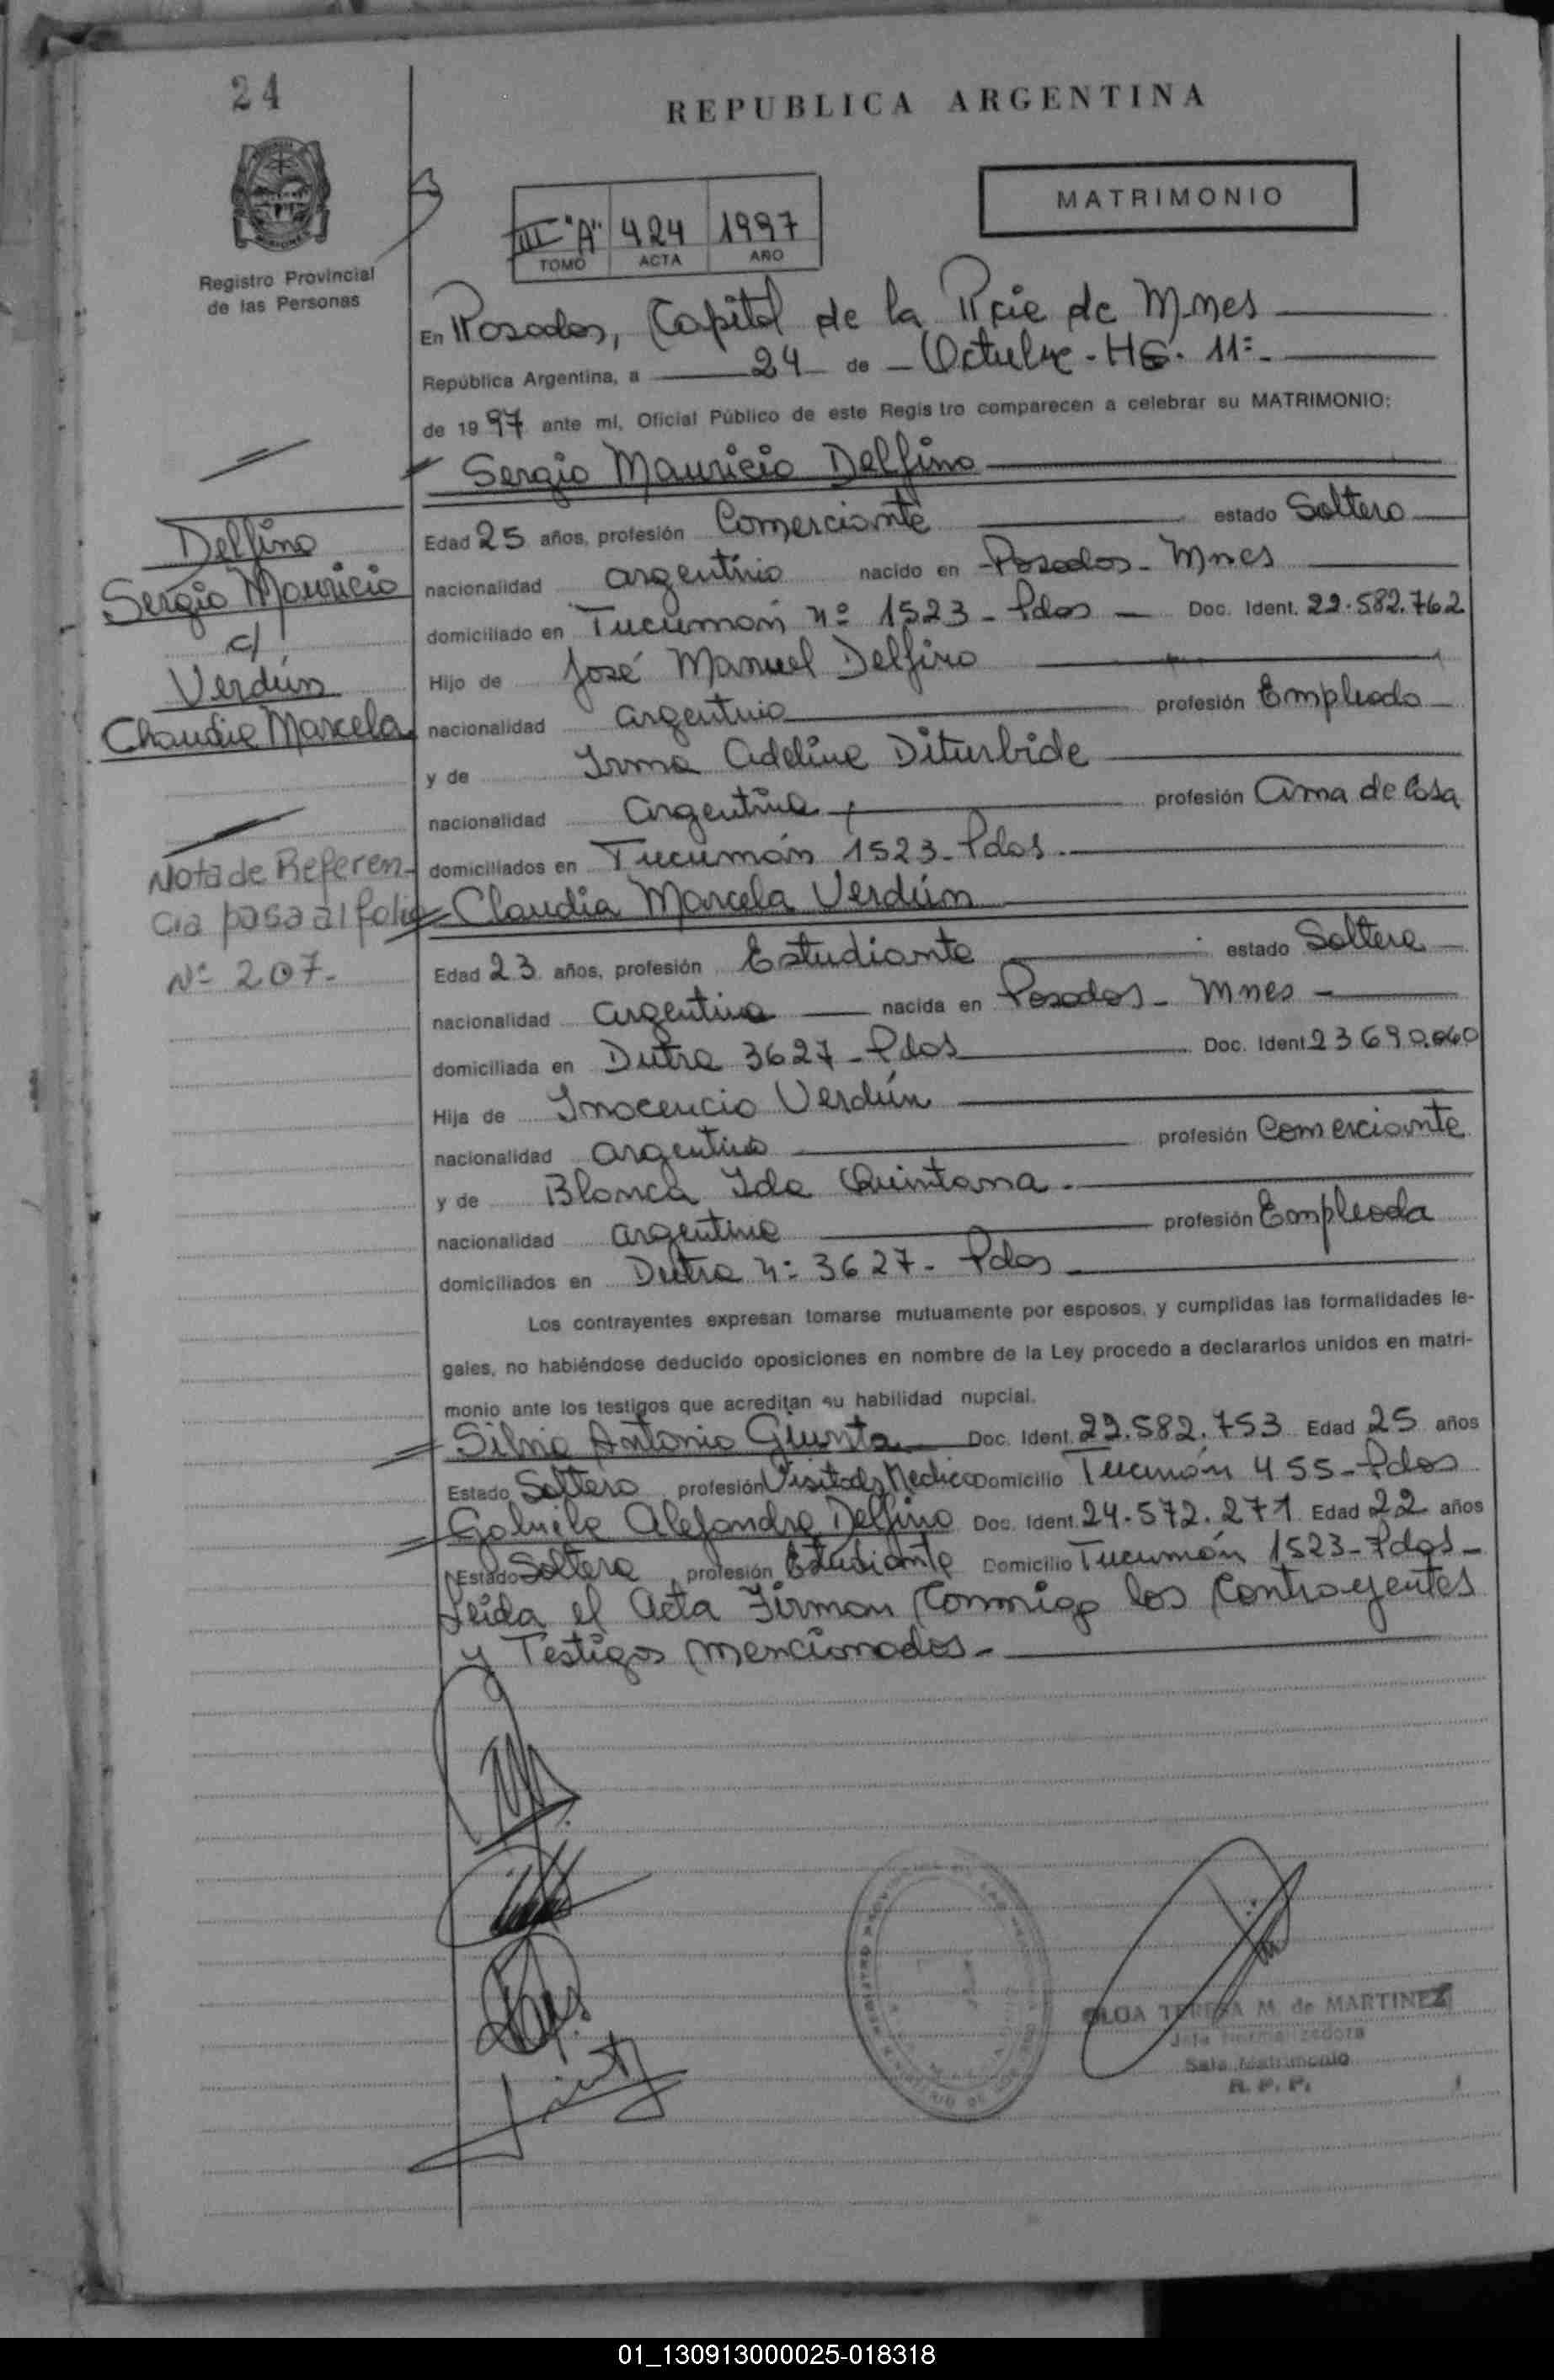 24
REPUBLICA ARGENTINA
MATRIMONIO
III "A" 424 1997
TOMO ACTA AÑO
Registro Provincial
de las Personas
En Posadas, Capital de la Pcie de Mnes
República Argentina, a 24 de Octubre - HS. 11:-
de 1997 ante mi, Oficial Público de este Registro comparecen a celebrar su MATRIMONIO:
Sergio Mauricio Delfino
Edad 25 años, profesión Comerciante estado Soltero
nacionalidad argentino nacido en Posadas - Mnes
domiciliado en Tucumán nº 1523 - Pdas - Doc. Ident. 22.582.762
Hijo de José Manuel Delfino
nacionalidad argentino profesión Empleado
y de Irma Adeline Diturbide
nacionalidad argentina profesión Ama de Casa
domiciliados en Tucumán 1523 - Pdas.
Claudia Marcela Verdún
Edad 23 años, profesión Estudiante estado Soltera
nacionalidad argentina nacida en Posadas - Mnes -
domiciliada en Dutra 3627 - Pdas Doc. Ident. 23690.060
Hija de Inocencio Verdún
nacionalidad argentino profesión Comerciante
y de Blanca Ida Quintana.
nacionalidad argentina profesión Empleada
domiciliados en Dutra n: 3627 - Pdas
Los contrayentes expresan tomarse mutuamente por esposos, y cumplidas las formalidades le-
gales, no habiéndose deducido oposiciones en nombre de la Ley procedo a declararlos unidos en matri-
monio ante los testigos que acreditan su habilidad nupcial.
Silvio Antonio Giunta Doc. Ident. 22.582.753 Edad 25 años
Estado Soltero profesión Visitador Medico Domicilio Tucumán 455 - Pdas
Gabriela Alejandra Delfino Doc. Ident. 24.572.271 Edad 22 años
Estado Soltera profesión Estudiante Domicilio Tucumán 1523 - Pdas -
Leida el Acta Firman Conmigo los Contrayentes
y Testigos mencionados -
Delfino
Sergio Mauricio
c/
Verdún
Claudia Marcela
Nota de Referen-
cia pasa al folio
Nº 207.-
OLGA TERESA M. de MARTINEZ
Jefa Normalizadora
Sala Matrimonio
R. P. P.
01_130913000025-018318